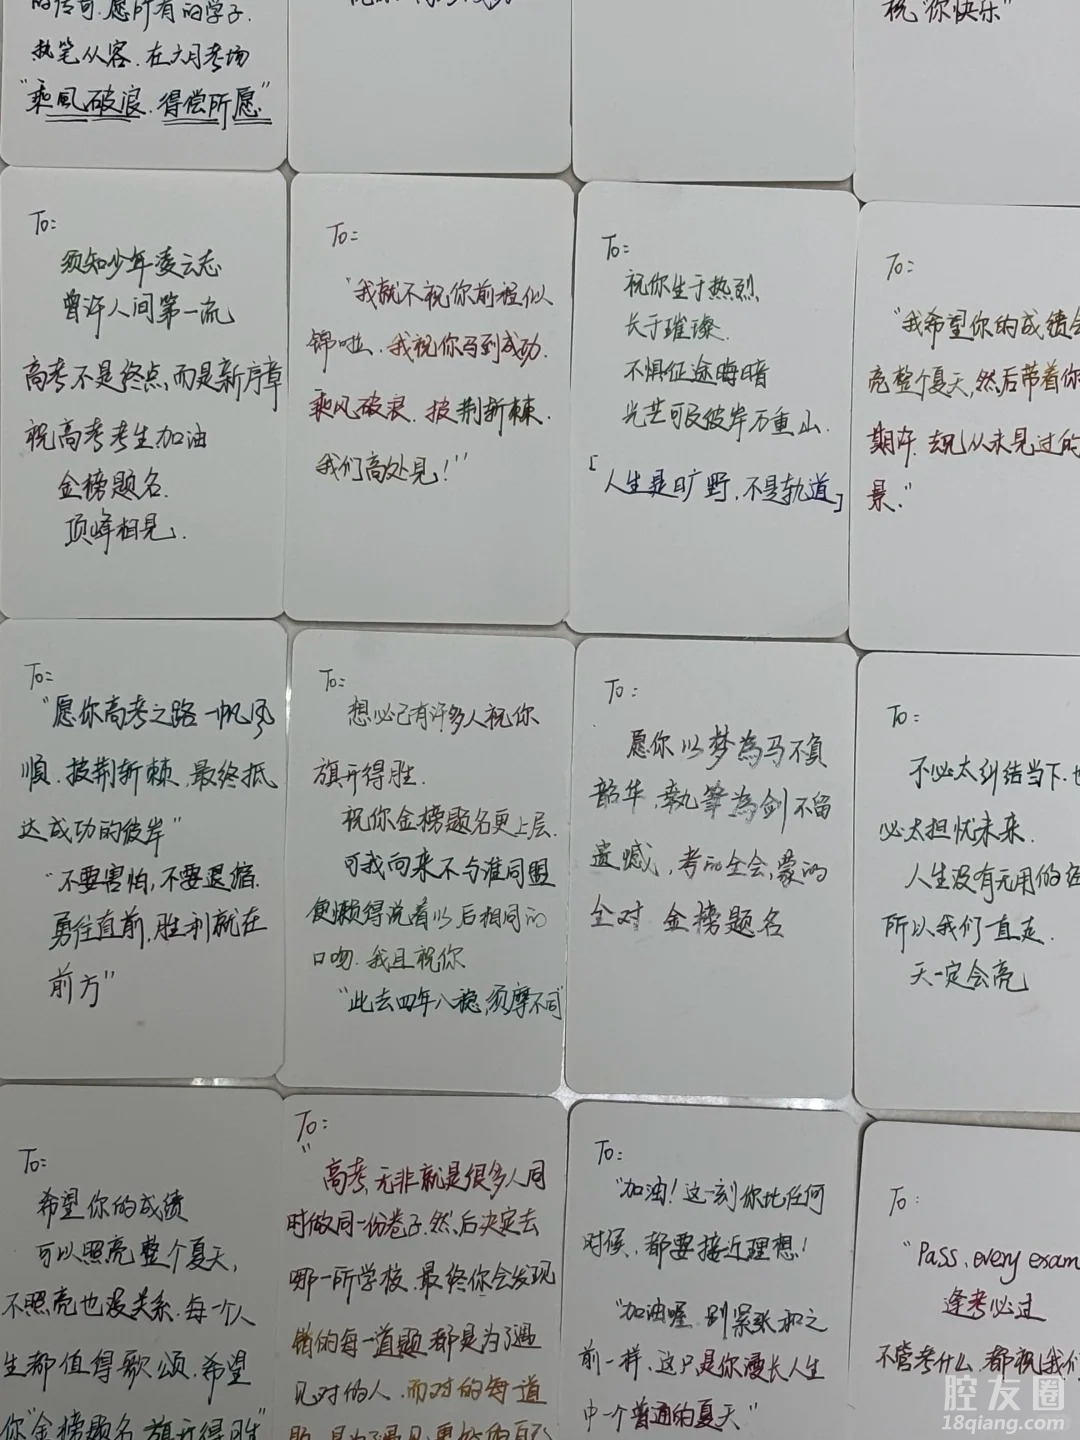 的传奇.愿所有的学子.
热笔从容.在六月考场
"乘風破浪.得偿所愿"
祝"你快乐"
To:
须知少年凌云志
曾许人间第一流
高考不是终点,而是新序章
祝高考考生加油
金榜题名.
顶峰相见.
To:
"我就不祝你前程似
锦啦.我祝你马到成功.
乘风破浪.披荆斩棘.
我们高处见!"
To:
祝你生于热烈,
长于璀璨.
不惧征途晦暗
光芒可及彼岸万重山.
「人生是旷野,不是轨道」
To:
"我希望你的成绩会
亮整个夏天,然后带着你
期许.去见从未见过的
景."
To:
"愿你高考之路一帆风
顺.披荆斩棘,最终抵
达成功的彼岸"
"不要害怕,不要退缩.
勇往直前.胜利就在
前方"
To:
想必已有许多人祝你
旗开得胜.
祝你金榜题名更上层.
可我向来不与谁同盟
便懒得说着以后相同的
口吻.我且祝你
"此去四年八稳,须摩不同"
To:
愿你以梦為马不負
韶华,執筆為剑不留
遗憾,考的全会,蒙的
全对 金榜题名
To:
不必太纠结当下.也
必太担忧未来.
人生没有无用的经
所以我们一直走.
天一定会亮
To:
希望你的成绩
可以照亮整个夏天,
不照亮也没关系.每一个人
生都值得歌颂.希望
你"金榜题名.旗开得胜"
To:
"高考,无非就是很多人同
时做同一份卷子.然后决定去
哪一所学校.最终你会发现
错的每一道题都是为了遇
见对的人.而对的每一道
题.是为了遇见更好的自己
To:
"加油!这一刻你比任何
时候,都要接近理想!
"加油喔 别紧张和之
前一样.这只是你漫长人生
中一个普通的夏天"
To:
"Pass.every exam
逢考必过
不管考什么.都祝我们
腔友圈
18qiang.com